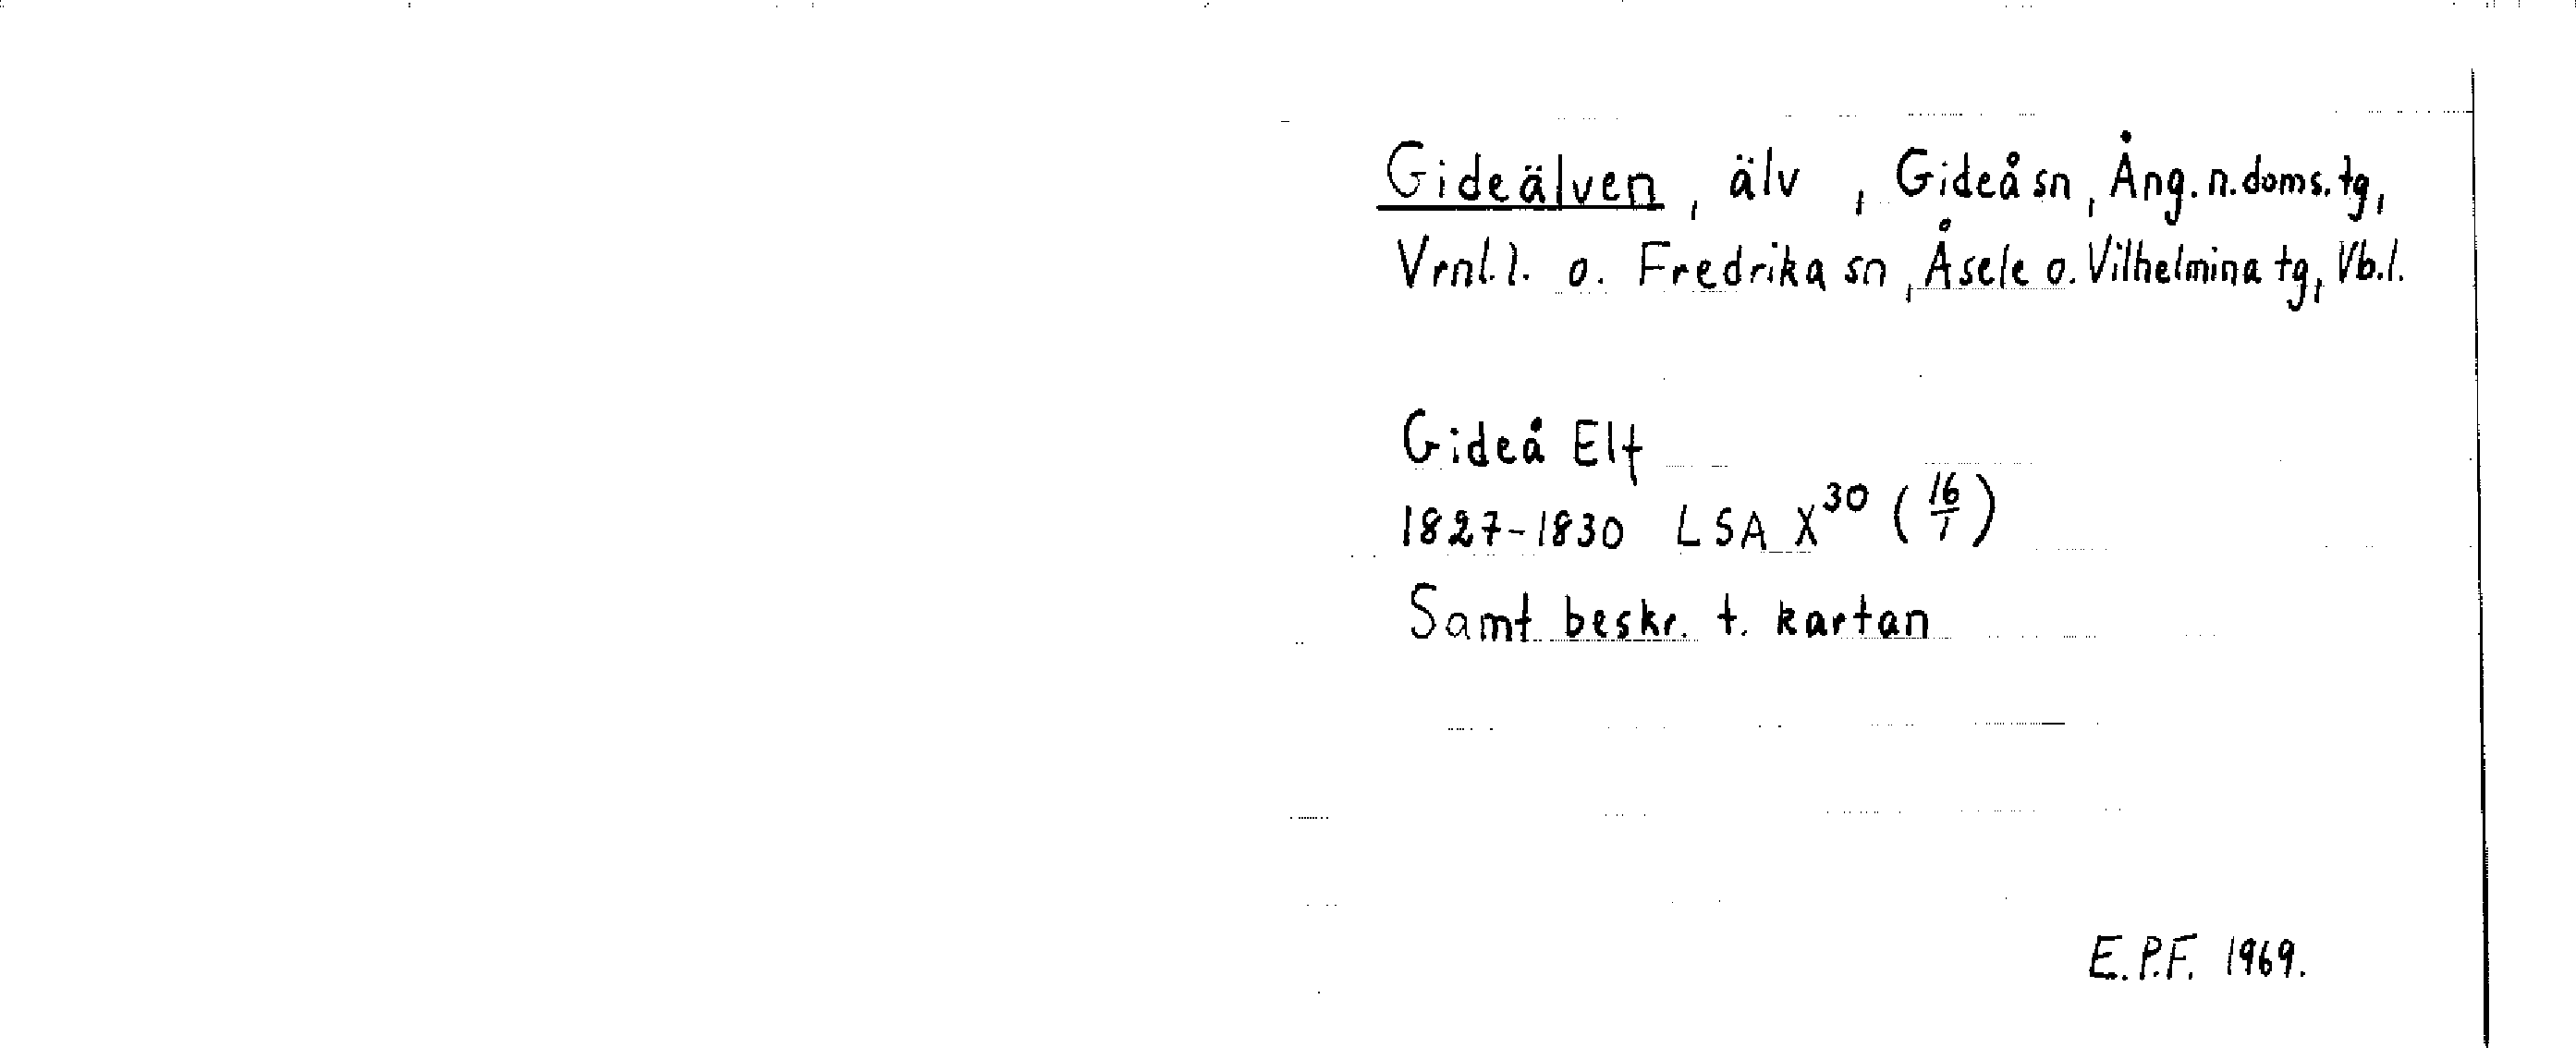 Gideälven, älv, Gideå sn, Ång. n. doms. tg,
Vrnl.l. o. Fredrika sn, Åsele o. Vilhelmina tg, Vb.l.
Gideå Elf
1827-1830 LSA X³⁰ (16/1)
Samt beskr. t. kartan
E.P.F. 1969.